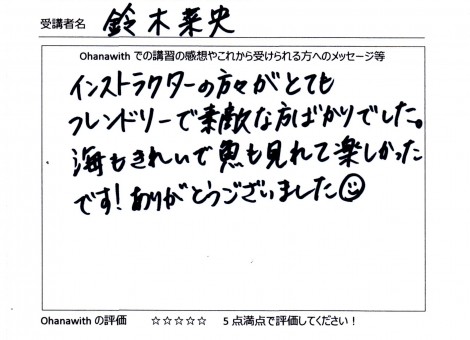 受講者名 鈴木菜央
Ohanawith での講習の感想やこれから受けられる方へのメッセージ等
インストラクターの方々がとても
フレンドリーで素敵な方ばかりでした。
海もきれいで魚も見れて楽しかった
です!ありがとうございました☺
Ohanawith の評価 ☆☆☆☆☆ 5 点満点で評価してください!